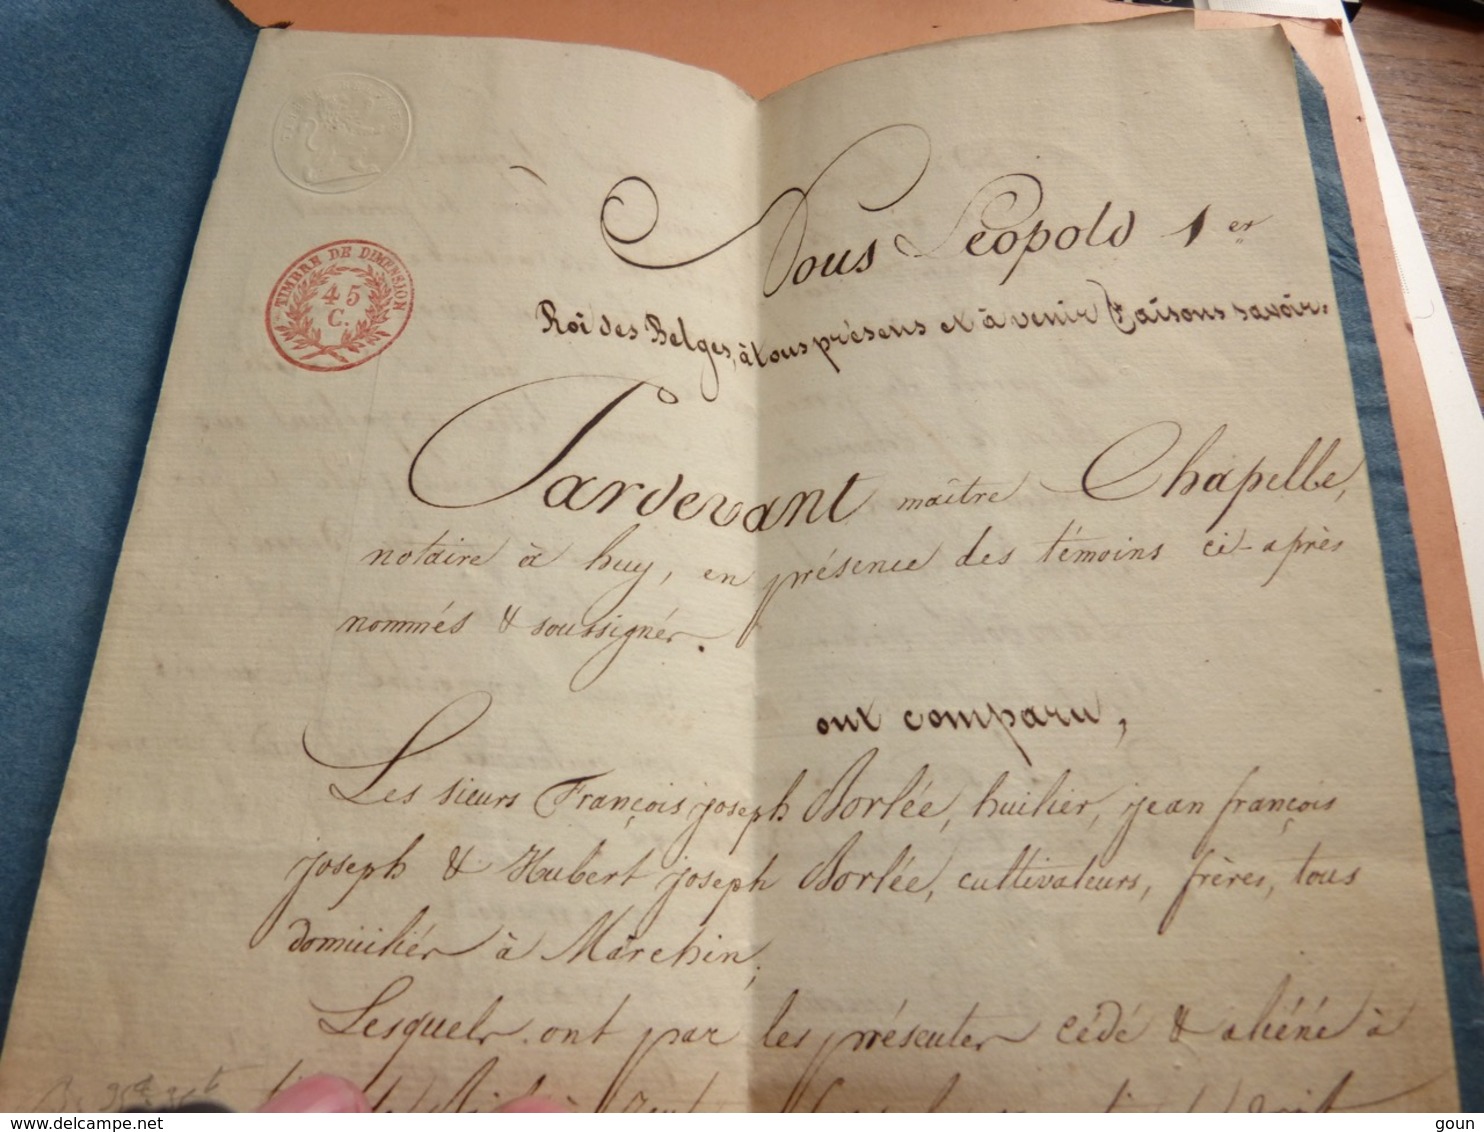 TIMBRE DE DIMENSION
45
C.
Nous Léopold 1er
Roi des Belges, à tous présens et à venir Faisons savoir.
Pardevant maître Chapelle,
notaire à huy, en présence des témoins ci-après
nommés & soussignés.
ont comparu,
Les sieurs François joseph Borlée, huilier, jean françois
joseph & Hubert joseph Borlée, cultivateurs, frères, tous
domiciliés à Marchin;
Lesquels ont par les présentes cédé & aliéné à
delcampe.net
goun